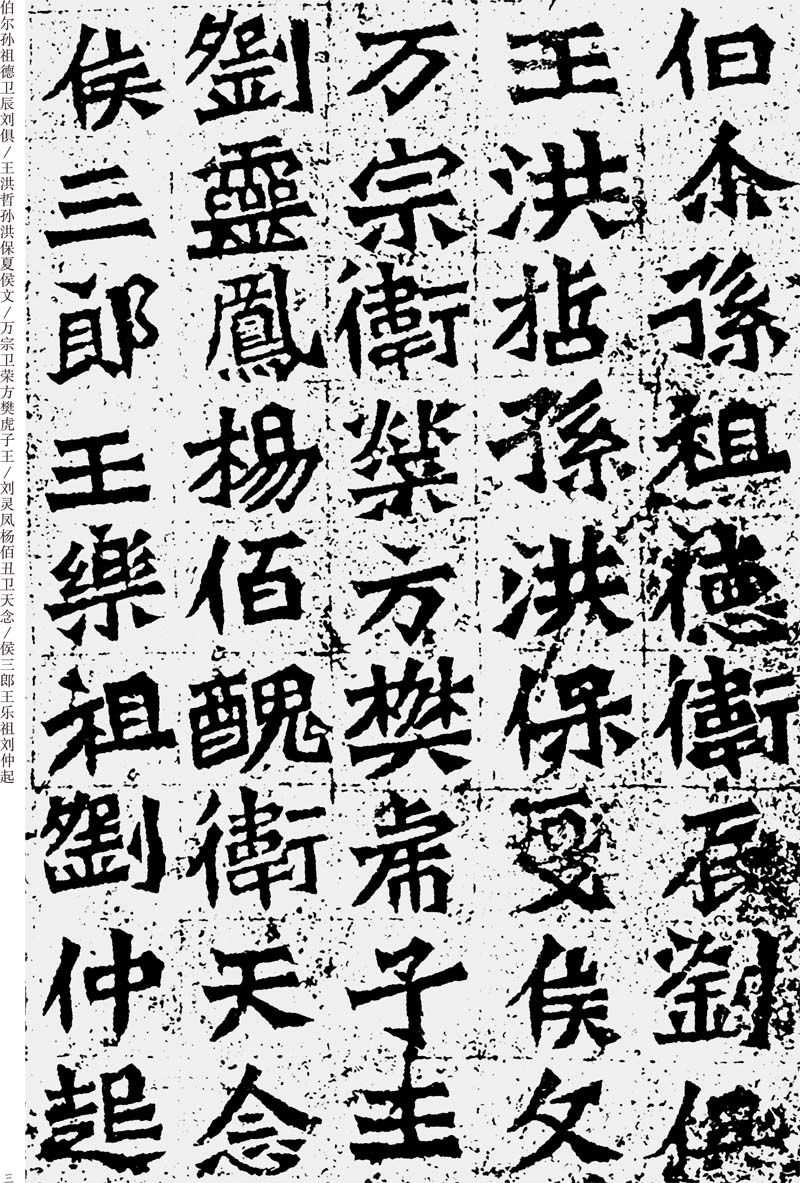 伯尒孫祖德衛辰劉俱
王洪哲孫洪保夏侯文
万宗衛榮方樊虎子王
劉靈鳳楊佰醜衛天念
侯三郎王樂祖劉仲起
伯尔孙祖德卫辰刘俱/王洪哲孙洪保夏侯文/万宗卫荣方樊虎子王/刘灵凤杨佰丑卫天念/侯三郎王乐祖刘仲起
三